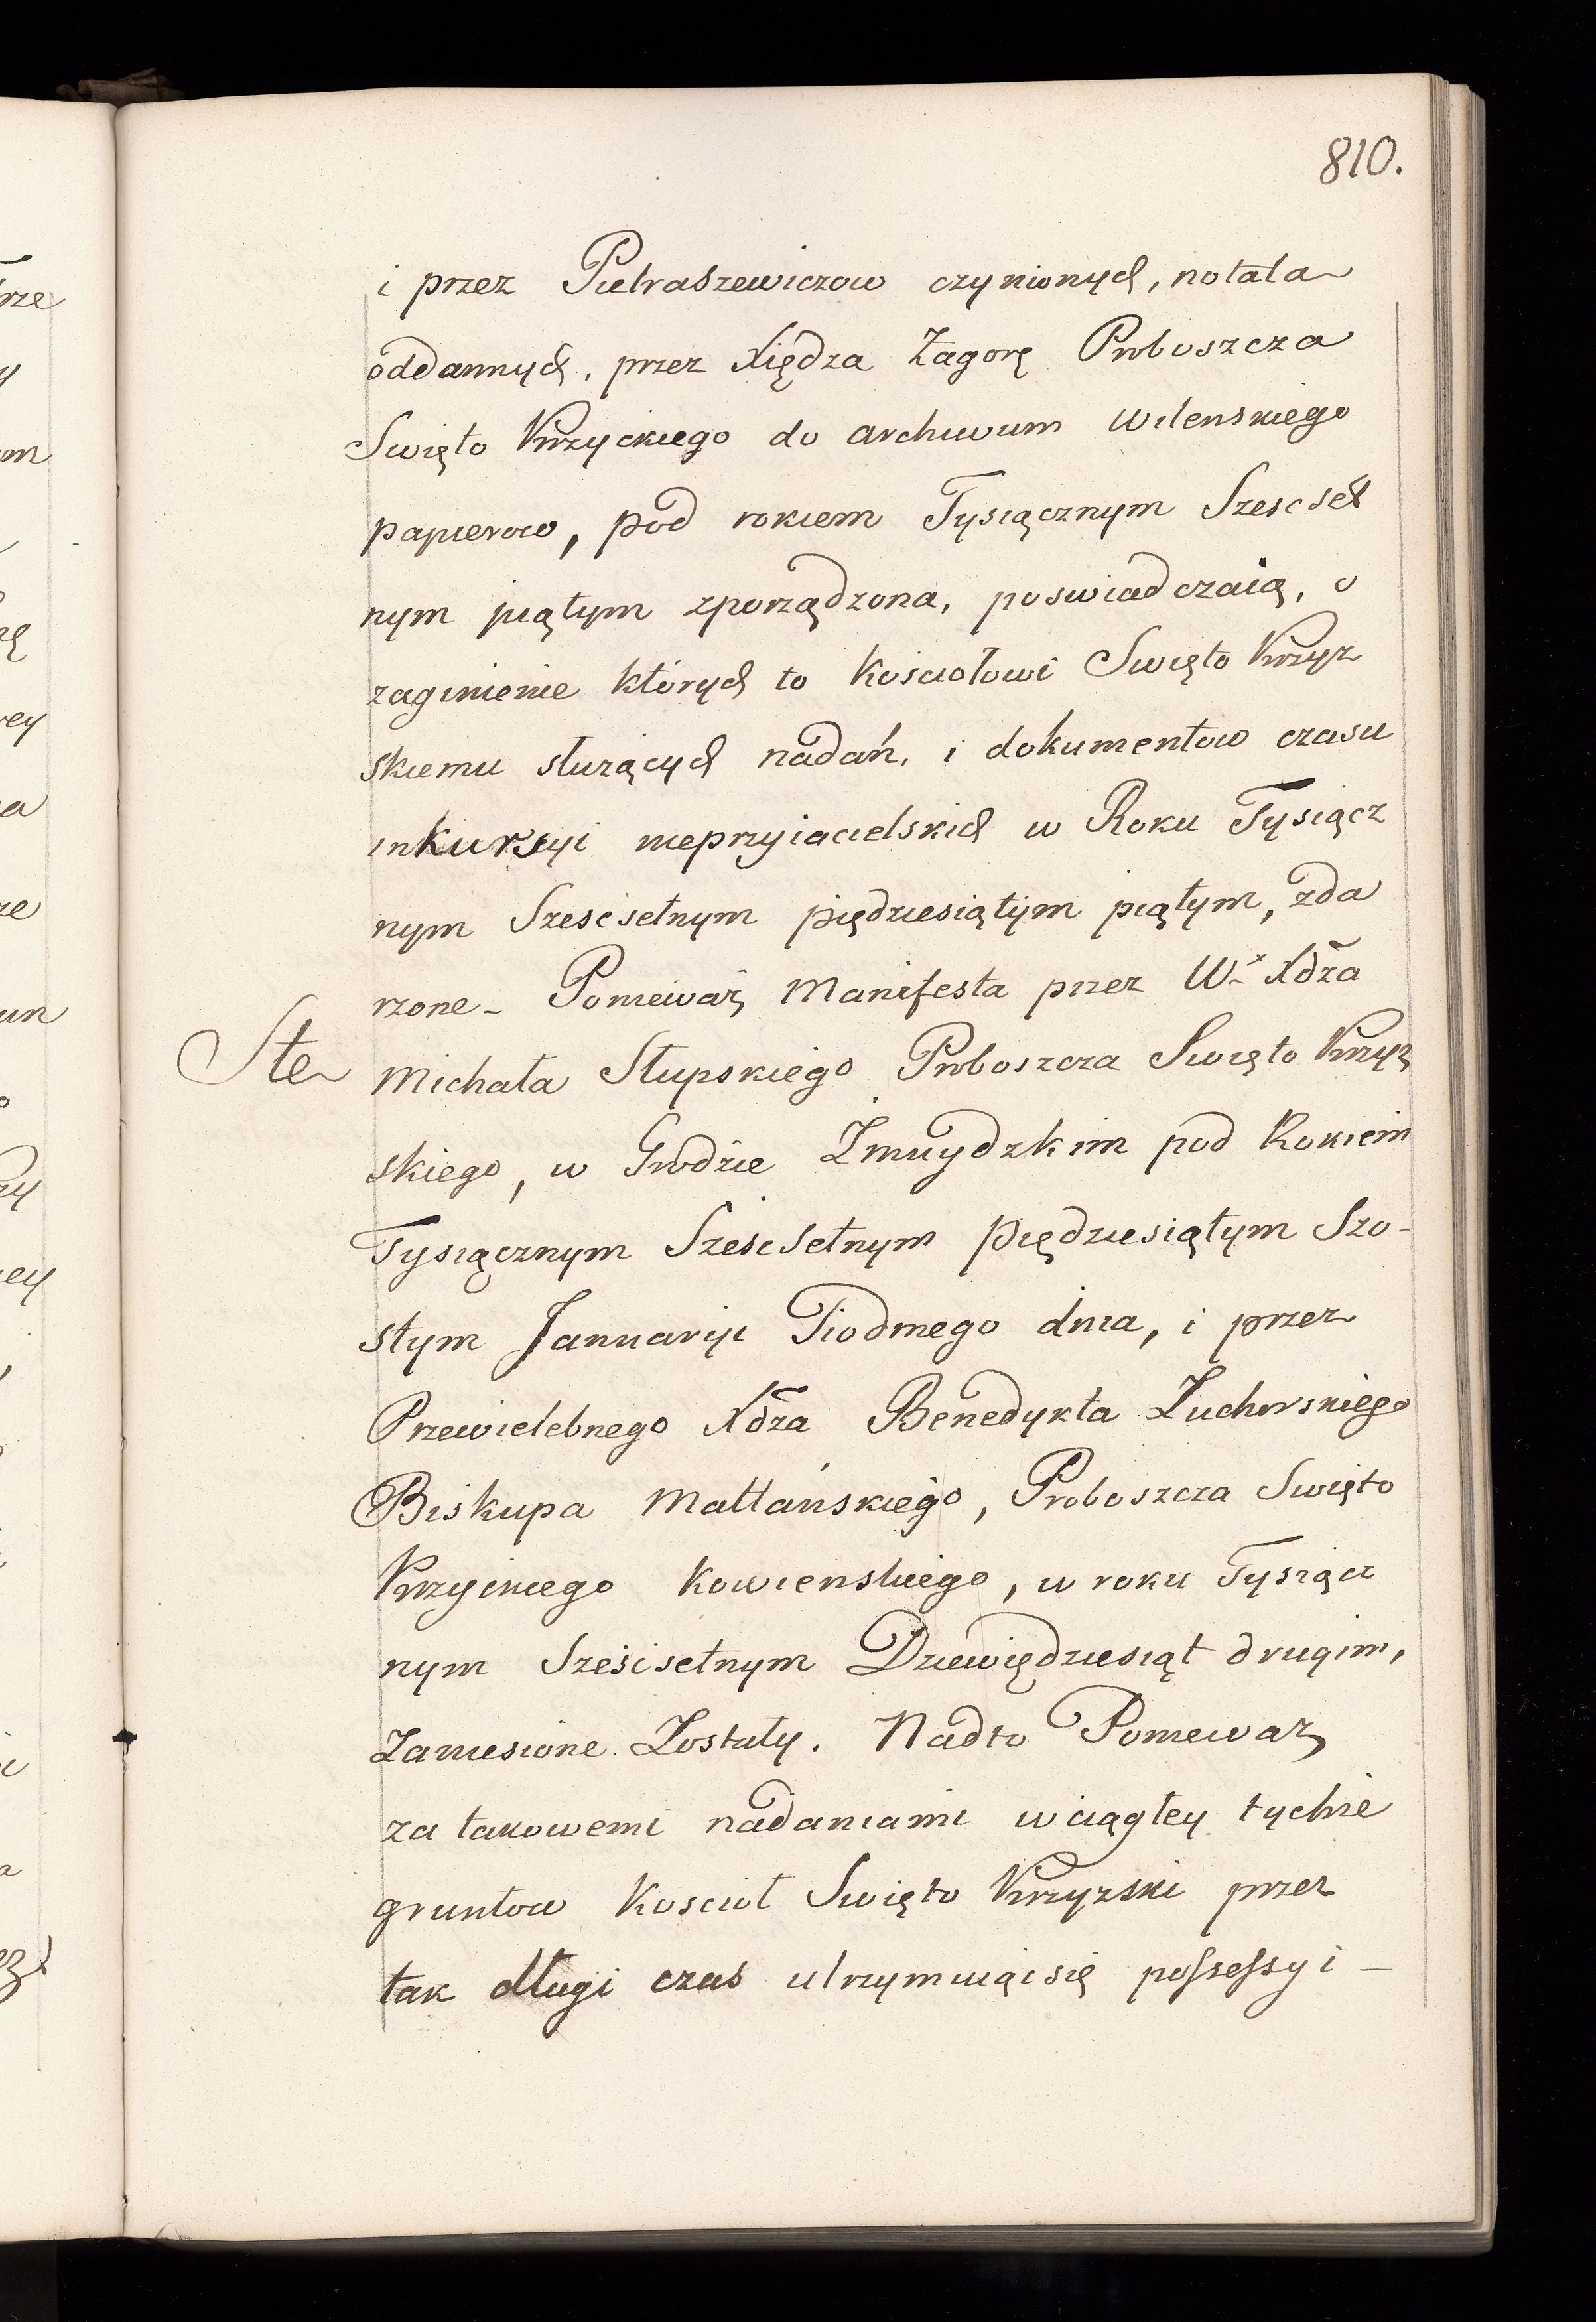 810.
i przez Pietraszewiczow czynionych, notata
oddannych, przez Xiędza Zagorę Proboszcza
Swięto Krzyckiego do archiwum Wilenskiego
papierow, pod rokiem Tysiącznym Szescset
nym piątym zporządzona, poswiadczaią, o
zaginienie których to Kościołowi Swięto Krzyz
skiemu służących nadań, i dokumentow czasu
inkursyi nieprzyiacielskich w Roku Tysiącz
nym Szescsetnym piędziesiątym piątym, zda
rzone - Ponieważ Manifesta przez W. Xdza
Ste Michała Słupskiego Proboszcza Swięto Krzyz
skiego, w Grodzie Żmuydzkim pod Rokiem
Tysiącznym Sześcsetnym Piędziesiątym Szo-
stym Januarii Siodmego dnia, i przez
Przewielebnego Xdza Benedykta Żuchorskiego
Biskupa Maltańskiego, Proboszcza Swięto
Krzyckiego Kowienskiego, w roku Tysiącz
nym Sześcsetnym Dziewiędziesiąt drugim,
Zaniesione Zostały. Nadto Ponieważ
za takowemi nadaniami w ciągłey tychże
gruntow Koscioł Swięto Krzyzski przez
tak długi czas utrzymuiąc się possessyi -